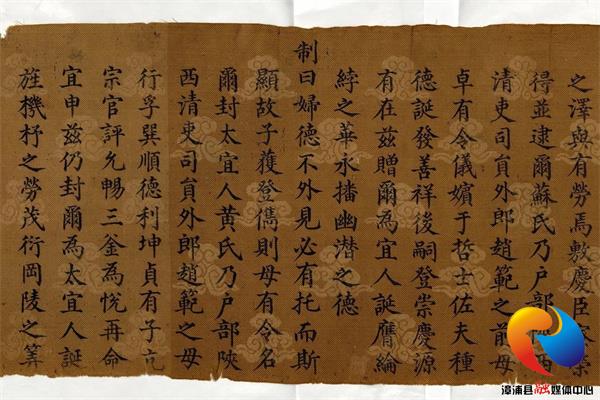 之澤與有勞焉敷慶臣家榮
得並逮爾蘇氏乃户部陝西
清吏司員外郎趙範之前母
卓有令儀嬪于哲士佐夫種
德誕發善祥後嗣登崇慶源
有在茲贈爾為宜人誕膺綸
綍之華永播幽潛之德
制曰婦德不外見必有托而斯
顯故子獲登儁則母有令名
爾封太宜人黄氏乃户部陝
西清吏司員外郎趙範之母
行孚巽順德利坤貞有子亢
宗官評允暢三釜為悅再命
宜申茲仍封爾為太宜人誕
旌機杼之勞茂衍岡陵之筭
漳浦县融媒体中心